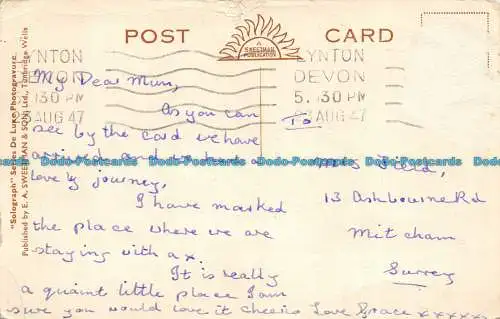 POST CARD
A
SWEETMAN
PUBLICATION
LYNTON
DEVON
5.30 PM
AUG 47
YNTON
DEVON
5.30 PM
AUG 47
"Solograph" Series De Luxe Photogravure.
Published by E. A. SWEETMAN & SON Ltd., Tunbridge Wells
My Dear Mum,
As you can
see by the card we have
arrived and had a
lovely journey,
I have marked
the place where we are
staying with a x.
It is really
a quaint little place I am
sure you would love it cheerio Love Grace xxxxx
To
Mrs Field,
13 Ashbourne Rd
Mitcham
Surrey
www.bodo-postcards.com